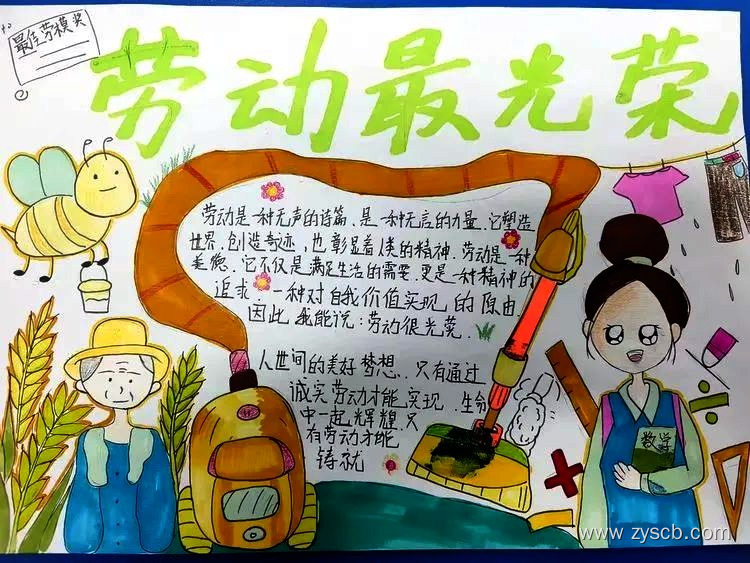 最佳劳模奖
劳动最光荣
劳动是一种无声的诗篇,是一种无言的力量.它塑造
世界.创造奇迹,也彰显着人类的精神.劳动是一种
美德.它不仅是满足生活的需要.更是一种精神的
追求.一种对自我价值实现的
因此我能说:劳动很光荣.
人世间的美好梦想.只有通过
诚实劳动才能实现.生命
中一起辉煌.只
有劳动才能
铸就
数学
www.zyscb.com